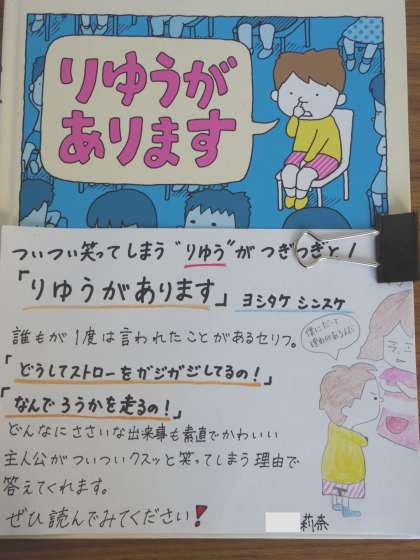 りゆうが
あります
ついつい笑ってしまう"りゆう"がつぎつぎと！
「りゆうがあります」ヨシタケ シンスケ
誰もが1度は言われたことがあるセリフ。
「どうしてストローをガジガジしてるの！」
「なんでろうかを走るの！」
どんなにささいな出来事も素直でかわいい
主人公がついついクスッと笑ってしまう理由で
答えてくれます。
ぜひ読んでみてください！
僕にだって
理由があるんだ
莉奈